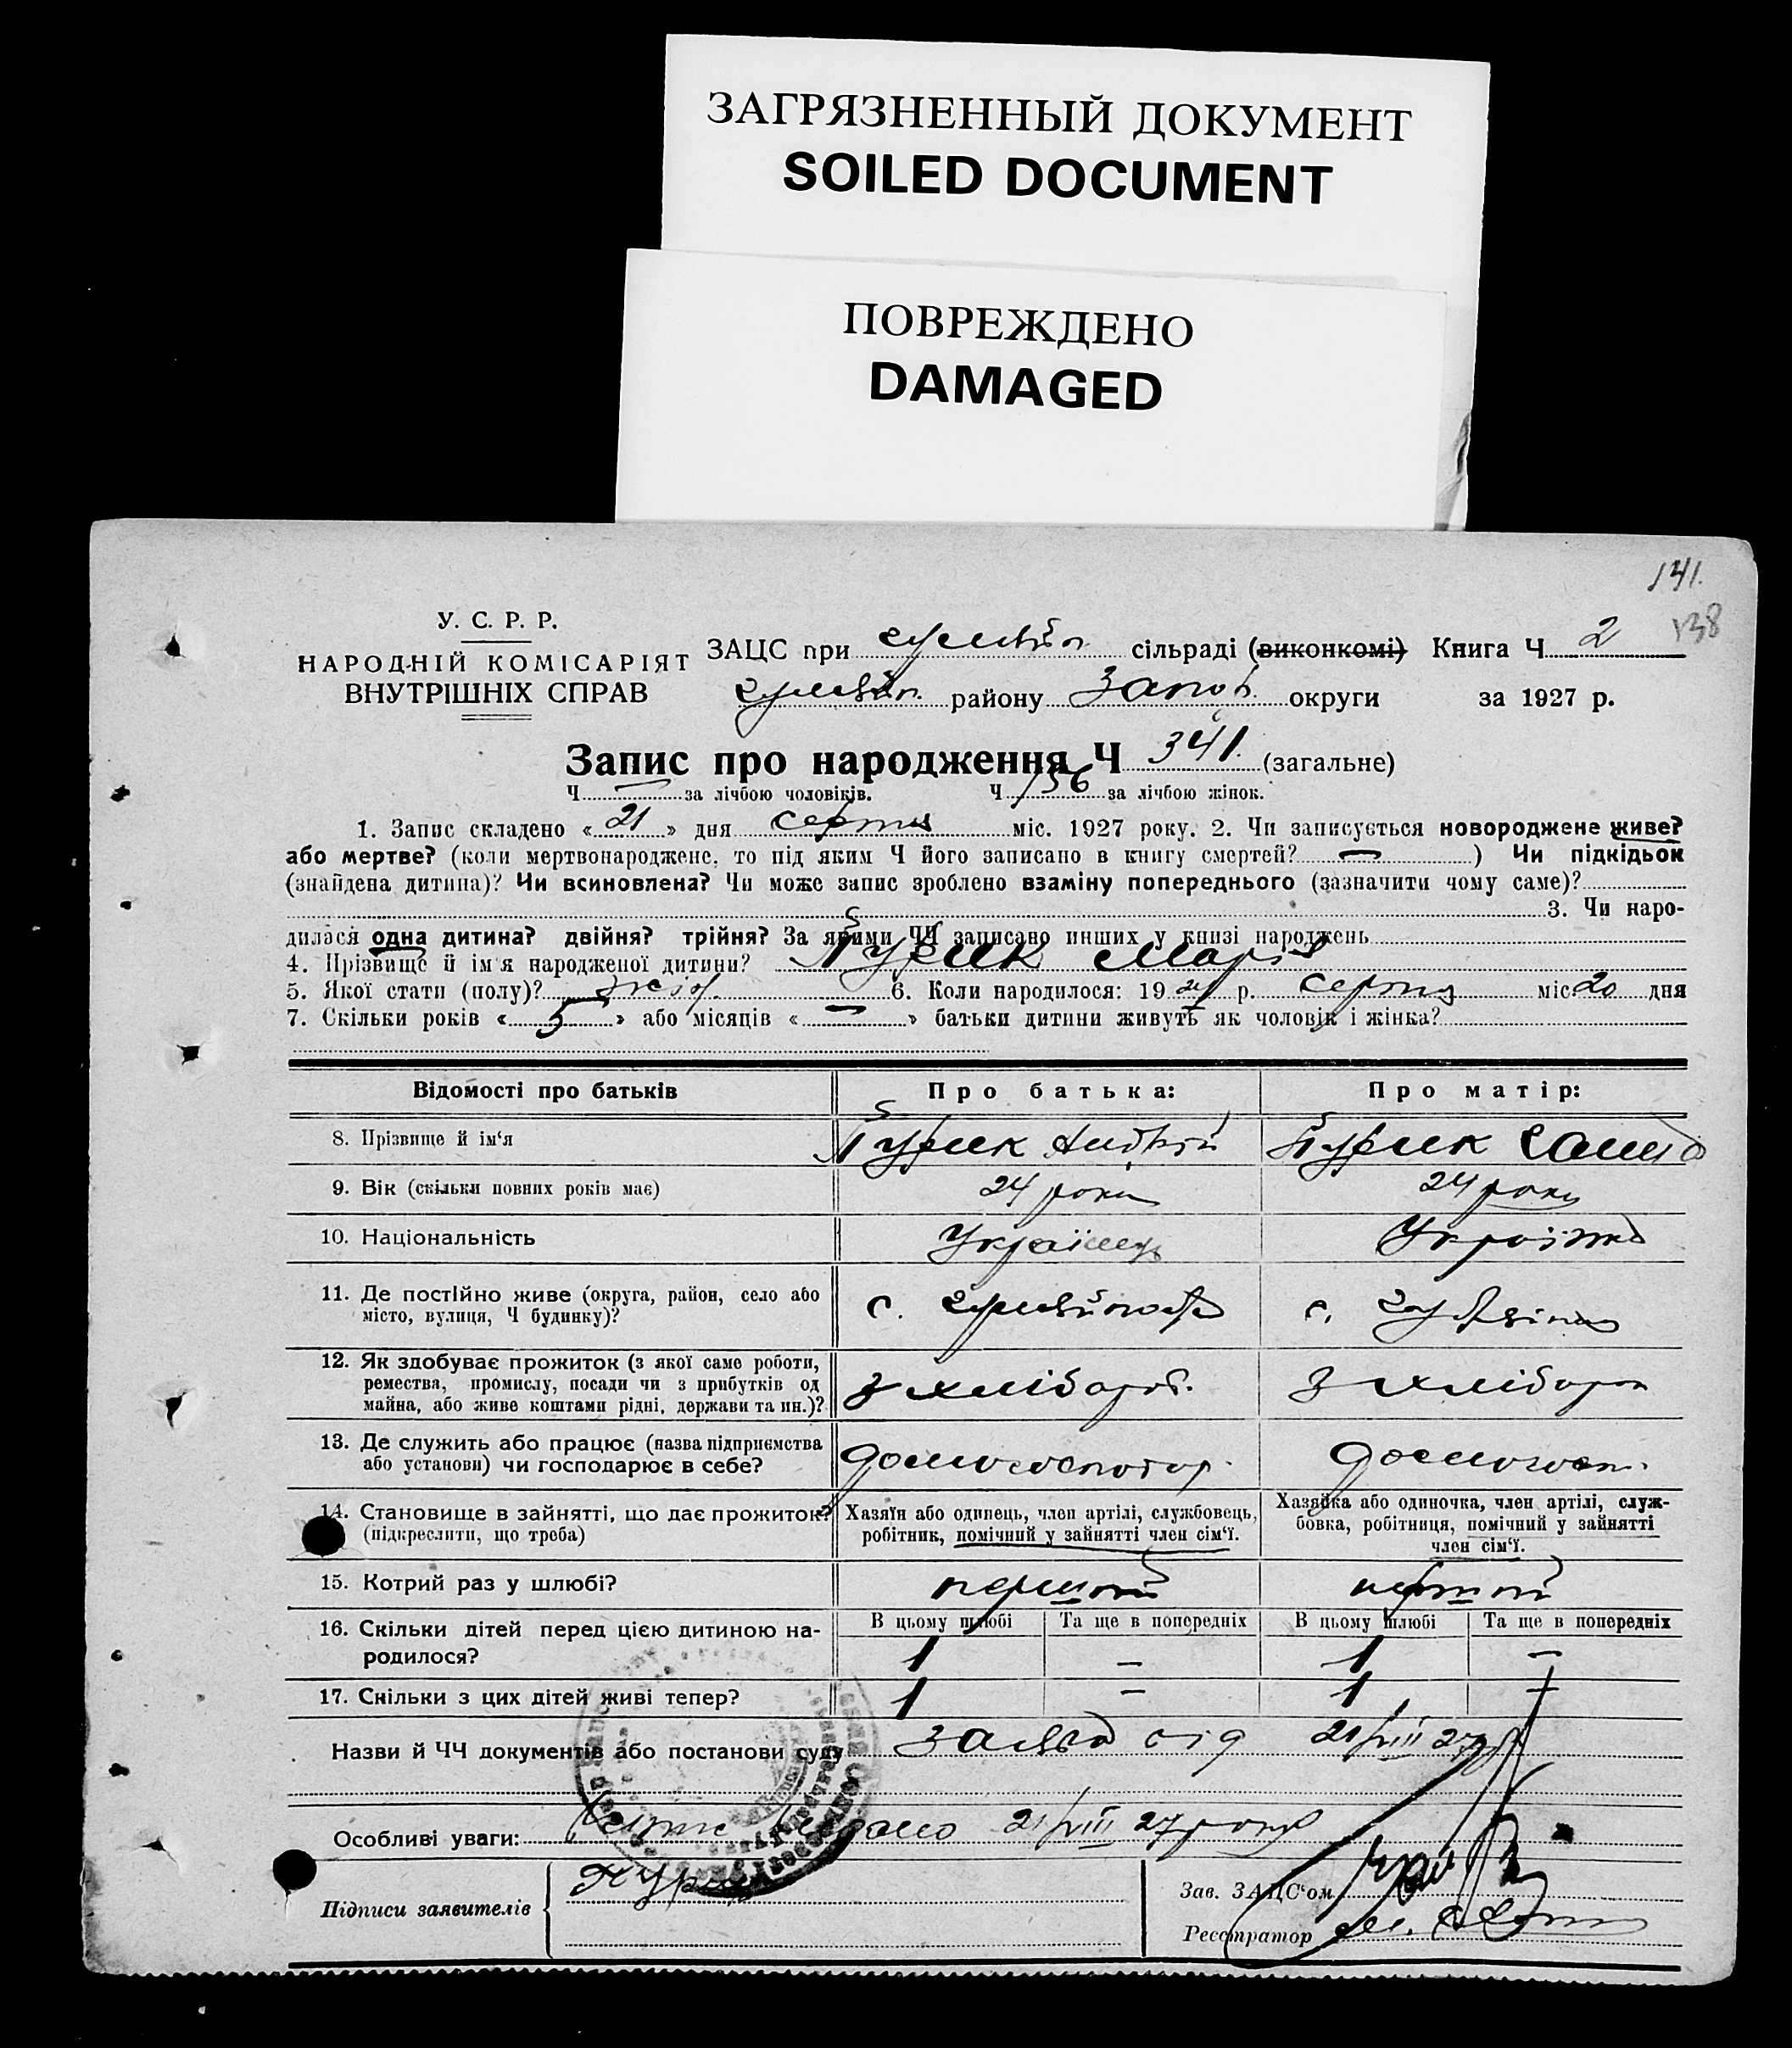 ЗАГРЯЗНЕННЫЙ ДОКУМЕНТ
SOILED DOCUMENT
ПОВРЕЖДЕНО
DAMAGED
141.
138
У. С. Р. Р.
НАРОДНІЙ КОМІСАРІЯТ
ВНУТРІШНІХ СПРАВ
ЗАЦС при сільраді (виконкомі) Книга Ч 2
району Запоріз. округи за 1927 р.
Запис про народження Ч 341. (загальне)
Ч — за лічбою чоловіків. Ч 156 за лічбою жінок.
1. Запис складено « 21 » дня серпня міс. 1927 року. 2. Чи записується новороджене живе?
або мертве? (коли мертвонароджене, то під яким Ч його записано в книгу смертей? — ) Чи підкідьок
(знайдена дитина)? Чи всиновлена? Чи може запис зроблено взаміну попереднього (зазначити чому саме)?
3. Чи наро-
дилася одна дитина? двійня? трійня? За якими ЧЧ записано инших у книзі народжень
4. Прізвище й ім'я народженої дитини? Марія
5. Якої стати (полу)? жіноч. 6. Коли народилося: 19 27 р. серпня міс. 20 дня
7. Скільки років « 5 » або місяців « — » батьки дитини живуть як чоловік і жінка?
Відомості про батьків Про батька: Про матір:
8. Прізвище й ім'я Андрій
9. Вік (скільки повних років має) 24 роки 24 роки
10. Національність Українець Українка
11. Де постійно живе (округа, район, село або
місто, вулиця, Ч будинку)? с. с.
12. Як здобуває прожиток (з якої саме роботи,
ремества, промислу, посади чи з прибутків од
майна, або живе коштами рідні, держави та ин.)? З хлібороб. З хлібороб
13. Де служить або працює (назва підприємства
або установи) чи господарює в себе? домогосподар. домогосп.
14. Становище в зайнятті, що дає прожиток?
(підкреслити, що треба)
Хазяїн або одинець, член артілі, службовець,
робітник, помічний у зайнятті член сім'ї.
Хазяйка або одиночка, член артілі, служ-
бовка, робітниця, помічний у зайнятті
член сім'ї.
15. Котрий раз у шлюбі? перший перший
В цьому шлюбі Та ще в попередніх В цьому шлюбі Та ще в попередніх
16. Скільки дітей перед цією дитиною на-
родилося? 1 — 1 —
17. Скільки з цих дітей живі тепер? 1 — 1 —
Назви й ЧЧ документів або постанови суду заява від 21/VIII 27 р.
Особливі уваги: видано 21/VIII 27 року
Підписи заявителів
Зав. ЗАЦС'ом
Реєстратор